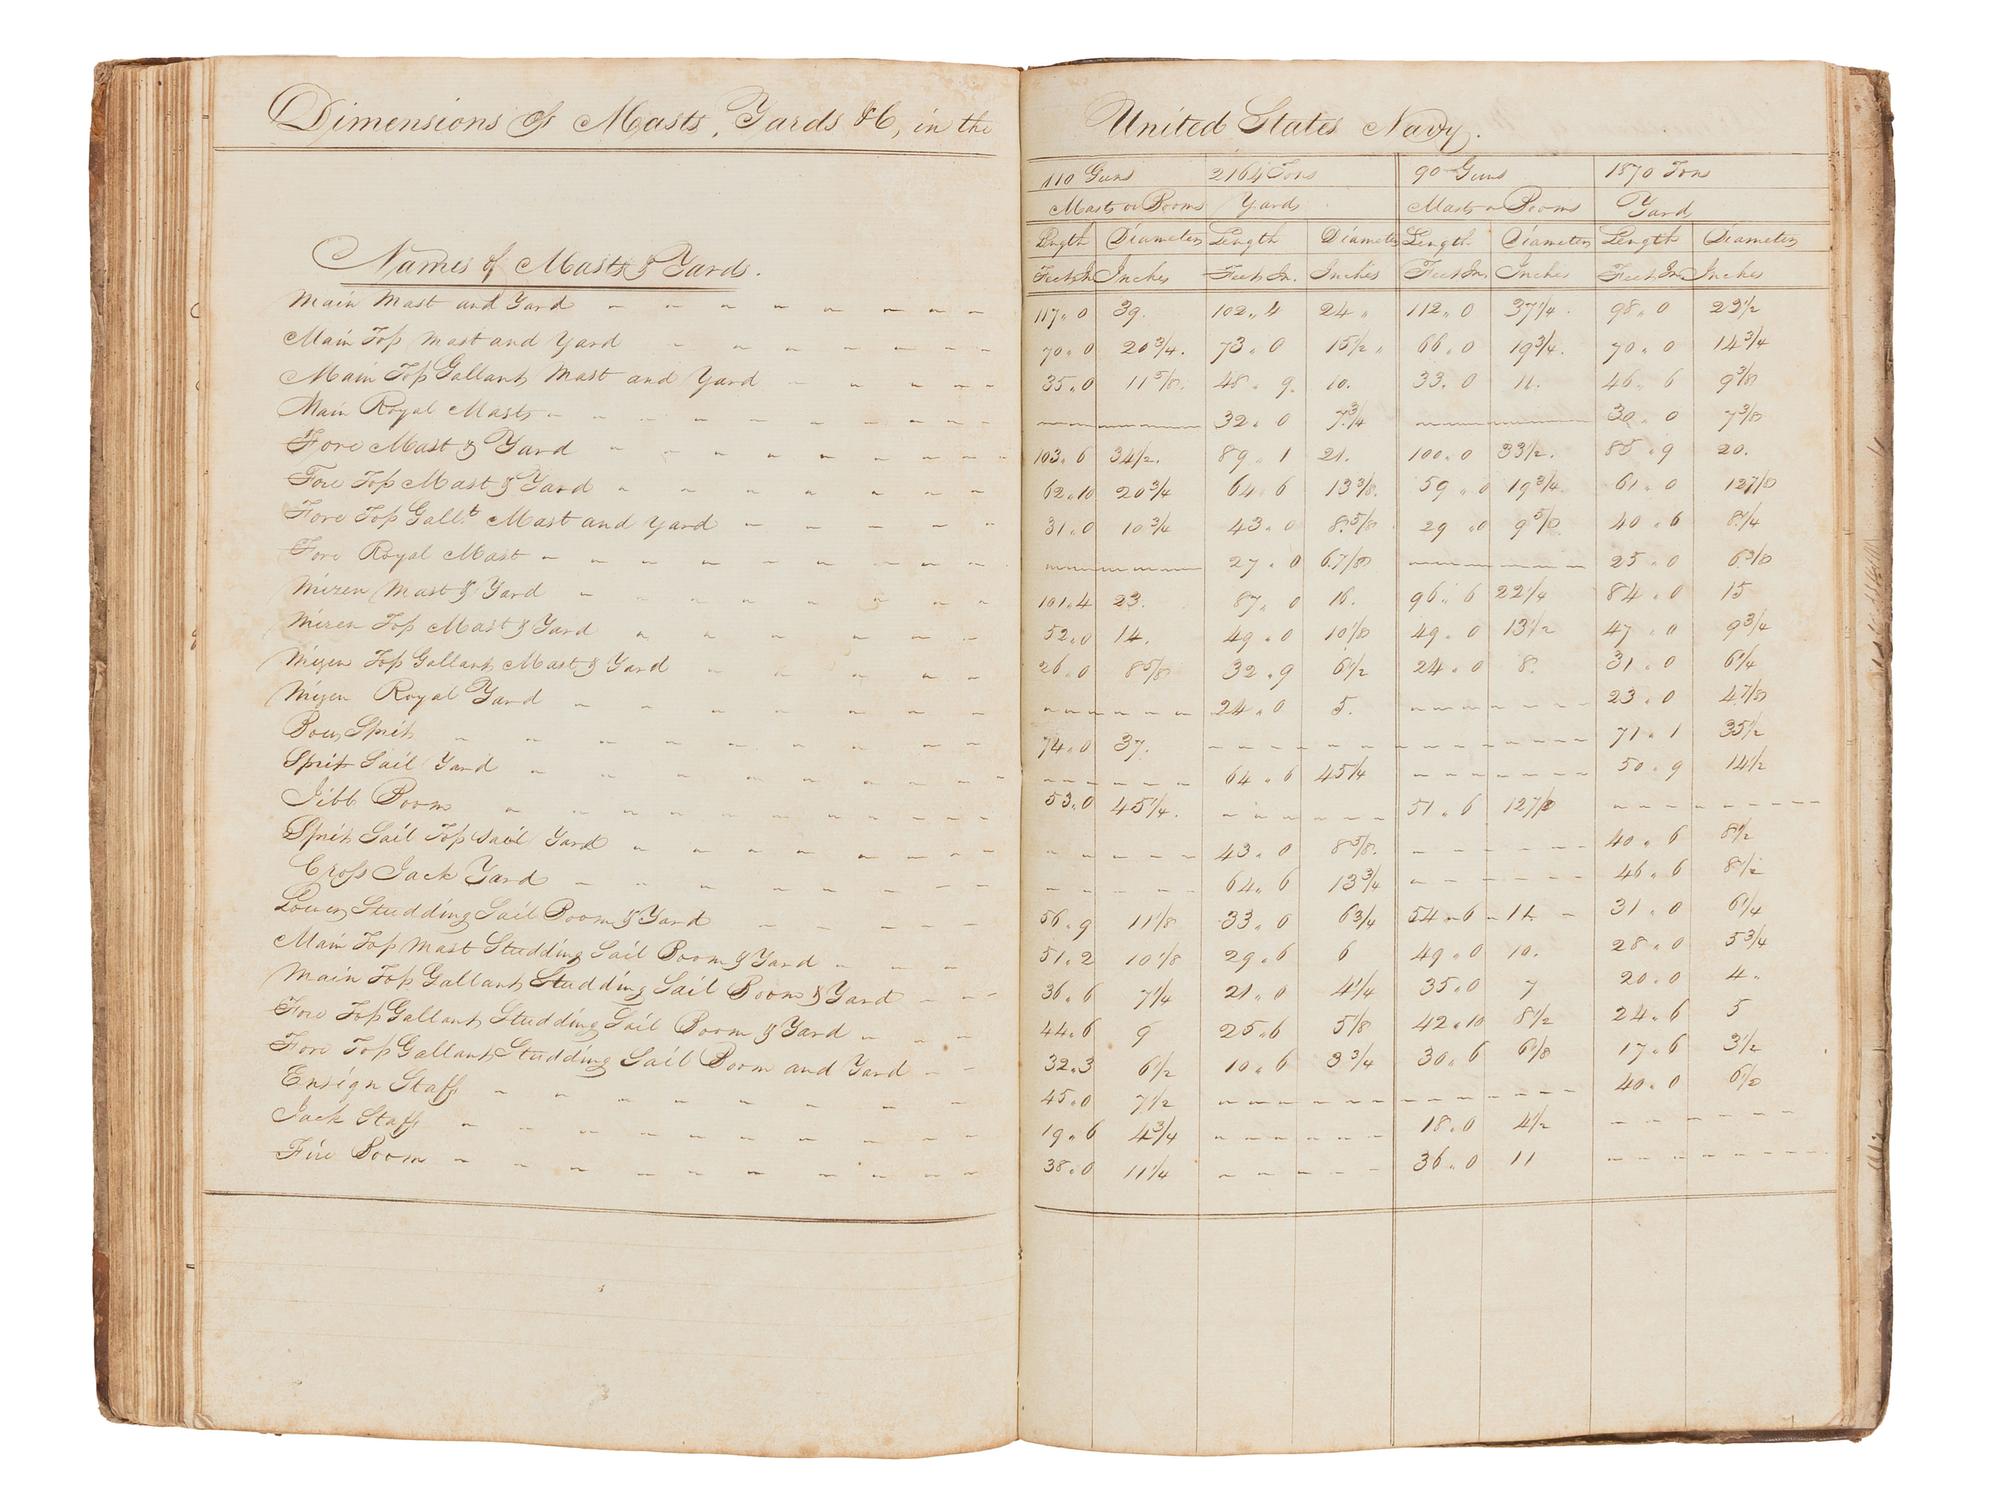 Dimensions of Masts, Yards &c, in the United States Navy.
110 Guns 2164 Tons 90 Guns 1870 Tons
Masts or Booms Yards Masts or Booms Yard
Length Diameter Length Diameter Length Diameter Length Diameter
Names of Masts & Yards. Feet In Inches Feet In. Inches Feet In. Inches Feet In Inches
Main Mast and Yard 117.0 39. 102.4 24 112.0 37 1/4. 98.0 23 1/2
Main Top Mast and Yard 70.0 20 3/4. 73.0 15 1/2 66.0 19 3/4. 70.0 14 3/4
Main Top Gallant Mast and Yard 35.0 11 5/8. 48.9. 10. 33.0 11. 46.6 9 3/8
Main Royal Masts 32.0 7 3/4 30.0 7 3/8
Fore Mast & Yard 103.6 34 1/2. 89.1 21. 100.0 33 1/2. 85.9 20.
Fore Top Mast & Yard 62.10 20 3/4 64.6 13 3/8. 59.0 19 3/4. 61.0 12 7/8
Fore Top Gallt Mast and Yard 31.0 10 3/4 43.0 8 5/8 29.0 9 5/8. 40.6 8 1/4
Fore Royal Mast 27.0 6 7/8 25.0 6 3/8
Mizen Mast & Yard 101.4 23. 87.0 16. 96.6 22 1/4 84.0 15
Mizen Top Mast & Yard 52.0 14. 49.0 10 1/8 49.0 13 1/2 47.0 9 3/4
Mizen Top Gallant Mast & Yard 26.0 8 5/8 32.9 6 1/2 24.0 8. 31.0 6 1/4
Mizen Royal Yard 24.0 5. 23.0 4 7/8
Bow Sprit 74.0 37. 71.1 35 1/2
Sprit Sail Yard 64.6 45 1/4 50.9 14 1/2
Jibb Boom 53.0 45 1/4. 51.6 12 7/8
Sprit Sail Top Sail Yard 43.0 8 5/8. 40.6 8 1/2
Cross Jack Yard 64.6 13 3/4 46.6 8 1/2
Lower Studding Sail Boom & Yard 56.9 11 1/8 33.0 6 3/4 54.6 11 31.0 6 1/4
Main Top Mast Studding Sail Boom & Yard 51.2 10 1/8 29.6 6 49.0 10. 28.0 5 3/4
Main Top Gallant Studding Sail Boom & Yard 36.6 7 1/4 21.0 4 1/4 35.0 7 20.0 4.
Fore Top Gallant Studding Sail Boom & Yard 44.6 9 25.6 5 1/8 42.10 8 1/2 24.6 5
Fore Top Gallant Studding Sail Boom and Yard 32.3 6 1/2 10.6 3 3/4 30.6 6 1/8 17.6 3 1/2
Ensign Staff 45.0 7 1/2 40.0 6 1/2
Jack Staff 19.6 4 3/4 18.0 4 1/2
Fire Boom 38.0 11 1/4 36.0 11